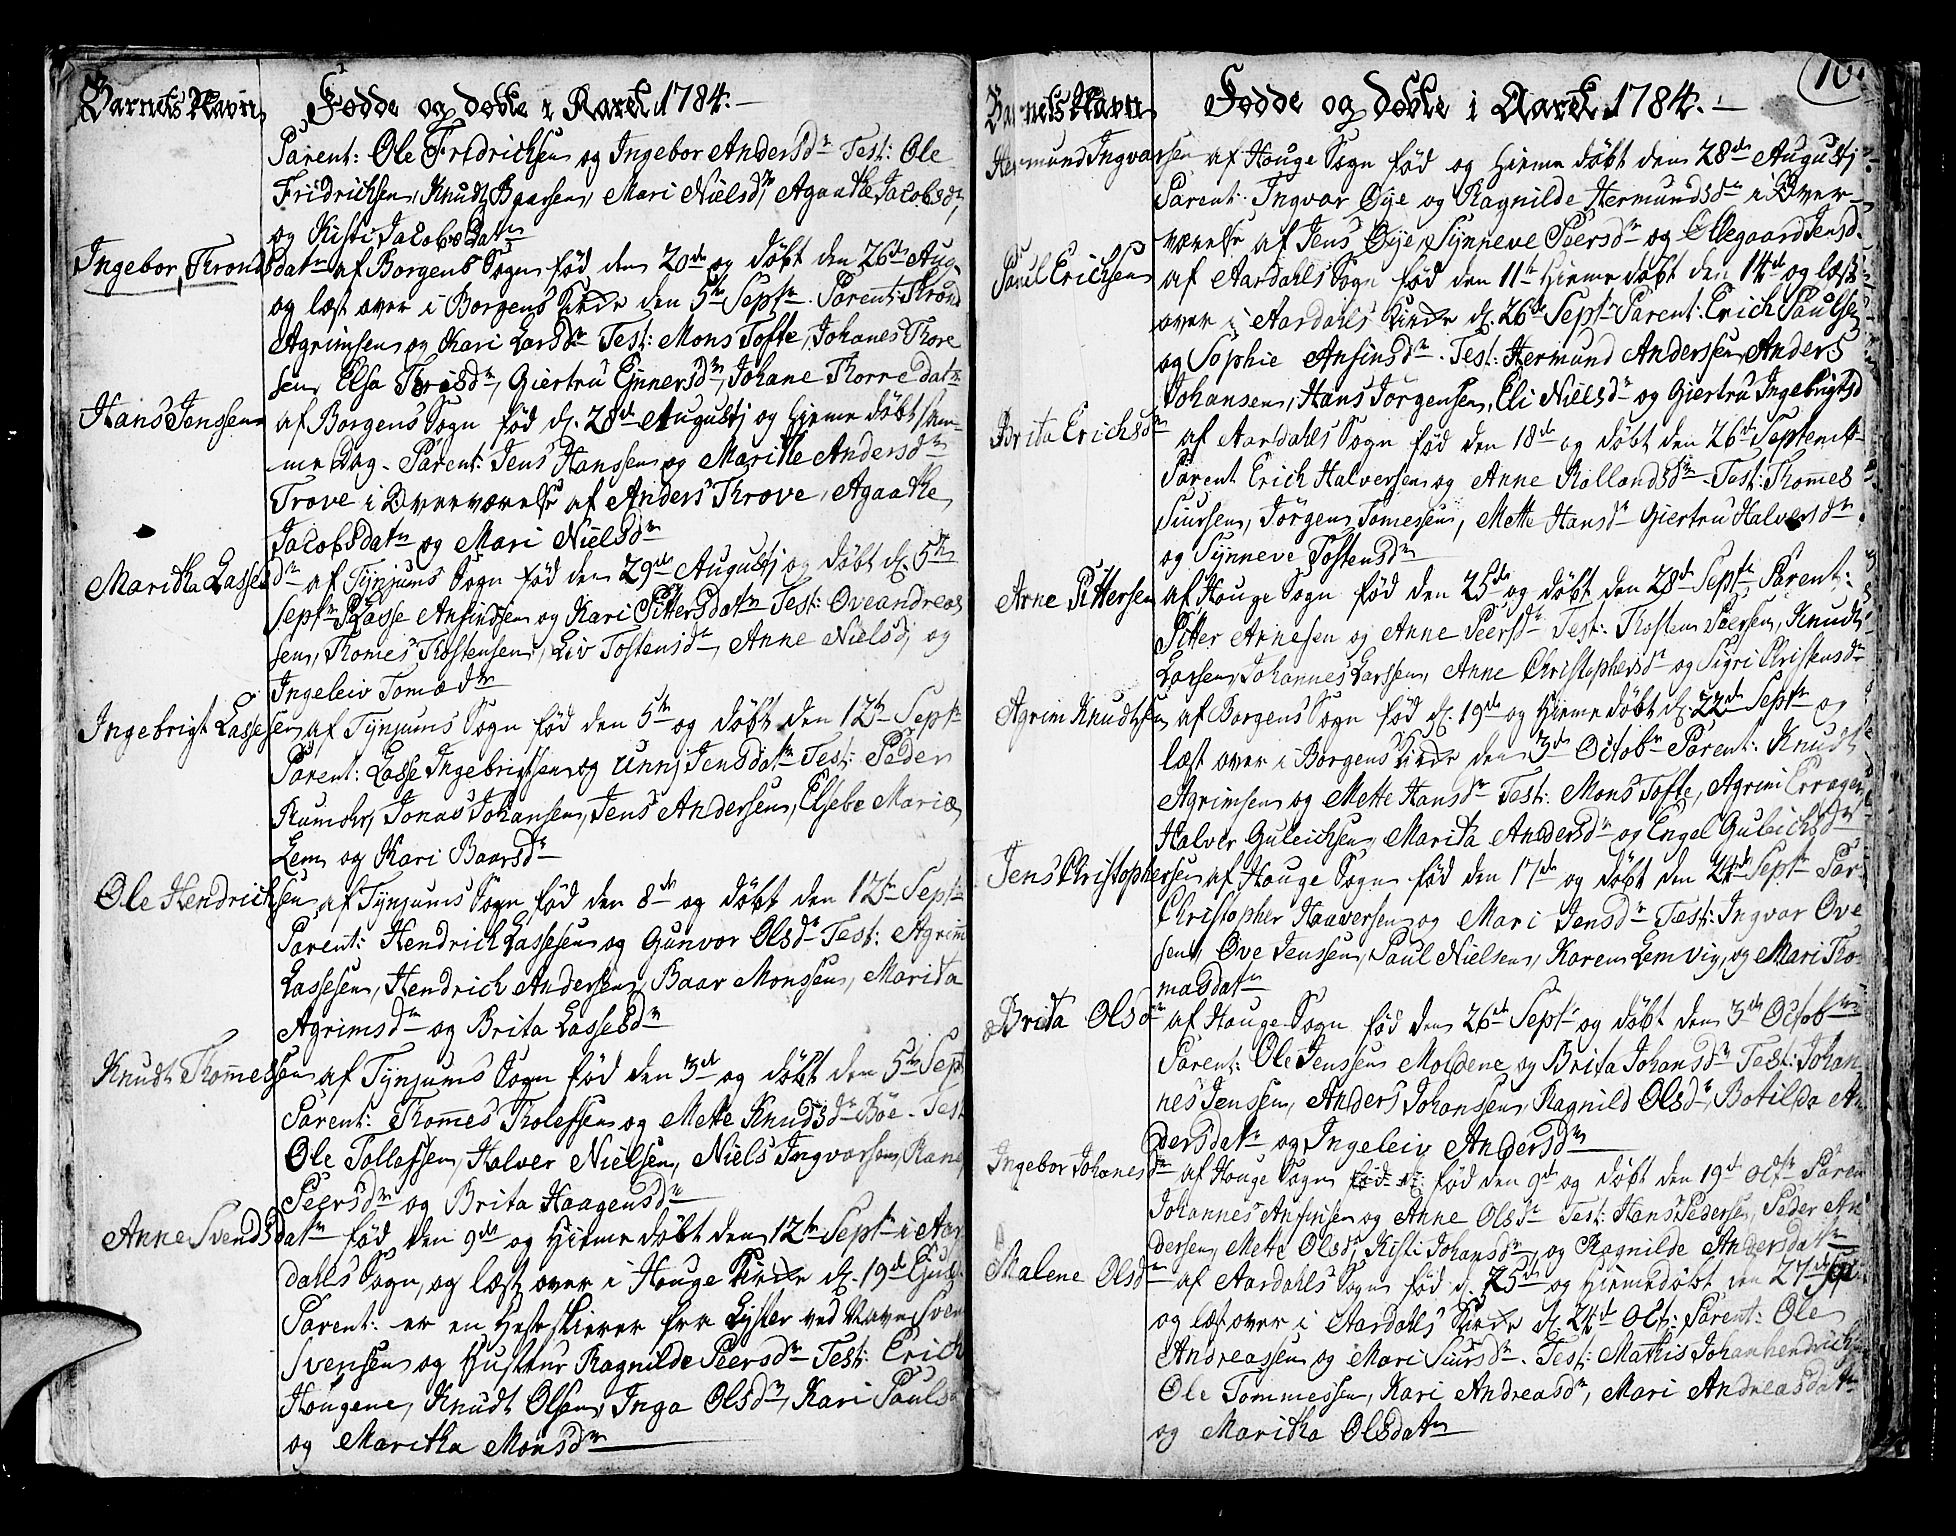 Barnets Navn Fødde og døbte i Aaret 1784.
Parent: Ole Fridrichsen og Ingebor Andersdr Test: Ole
Fridrichsen, Knudt Baarsen, Mari Nielsdr, Agaathe Jacobsdr,
og Kisti Jacobsdatr
Ingebor Thronsdatr af Borgens Sogn fød den 20de og døbt den 26de Aug.
og læst over i Borgens Kirke den 5te Septr. Parent: Thron
Agrimsen og Kari Larsdr Test: Mons Tofte, Johanes Thore
sen, Elsa Thorisdr, Giertru Ejnersdr, Johane Thorredatr
Hans Jenssen af Borgens Sogn fød d. 28de Augustj og hieme døbt sam-
me Dag. Parent: Jens Hanssen og Marithe Andersdr
Trove i Overværelse af Anders Throve, Agaathe
Jacobsdatr og Mari Nielsdr
Maritha Lassesdr af Tynjums Sogn fød den 29de Augustj og døbt d. 5te
Septr P: Lasse Anfindsen og Kari Pittersdatr Test: Oveandreas
sen, Thomes Thostensen, Liv Tostensdr, Anne Nielsd, og
Ingeleiv Tomædr
Ingebrigt Lassesen af Tynjums Sogn fød den 5te og døbt den 12te Septr
Parent: Lasse Ingebrigtsen og Unnj Jensdatr Test: Peder
Rumohr, Jonas Johansen, Jens Andersen, Elsebe Mariæ
Lem og Kari Baarsdr
Ole Hendrichsen af Tynjums Sogn fød den 8de og døbt den 12te Septr
Parent: Hendrich Lassesen og Gunvor Olsdr Test: Agrim
Lassesen, Hendrich Andersen, Baar Monssen, Marita
Agrimsdr og Brita Lassesdr
Knudt Thommessen af Tynjums Sogn fød den 3de og døbt den 5te Sept
Parent: Thommes Tholefsen og Mette Knudsdr Böe. Test
Ole Tollefsen, Halver Nielsen, Niels Ingvarsen,
Peersdr og Brita Haagensdr
Anne Svendsdatr fød den 9de og hieme døbt den 12te Septr i Aar
dahls Sogn, og læst over i Houge Kirke d. 19de
Parent: er en Hesteskierer fra Lyster ved Navn Sven
Svensen og Hustrur Ragnilde Peersdr Test: Erich
Hougene, Knudt Olsen, Inga Olsdr, Kari Pauls
og Maritha Monsdr
Barnets Navn Fødde og døbte i Aaret 1784. 10.
Hermund Ingvarsen af Houge Sogn fød og hieme døbt den 28de Augustj
Parent: Ingvar Øye og Ragnilde Hermundsdr i Over-
værelse af Jens Øye, Synneve Peersdr og Ellegaard Jensd.
Paul Erichsen af Aardahls Sogn fød den 11te hieme døbt den 14de og læst
over i Aardahls Kirke d. 26de Septr Parent: Erich Paulsen
og Sophie Anfinsdr. Test: Hermund Anderssen, Anders
Johansen, Hans Jörgensen, Eli Nielsdr og Giertru Ingebrigtsd
Brita Erichsdr af Aardahls Sogn fød den 18de og døbt den 26de Septembr
Parent Erich Halversen og Anne Rollandsdr. Test: Thommes
Siursen, Jörgen Tomesen, Mette Hansdr Giertru Halversdr
og Synneve Tostensdr
Arne Pittersen af Houge Sogn fød den 25de og døbt den 28de Septr Parent:
Pitter Arnesen og Anne Peersdr Test: Thosten Peersen, Knudt
Larssen, Johannes Larssen, Anne Christophersdr og Sigri Christensdr
Agrim Knudtsen af Borgens Sogn fød d. 19de og hieme døbt d. 22de Septr og
læst over i Borgens Kirke den 3de Octobr Parent: Knudt
Agrimsen og Mette Hansdr Test: Mons Tofte, Agrim Erragen,
Halver Guleichsen, Marita Andersdr og Engel Guleichsdr
Jens Christophersen af Houge Sogn fød den 17de og døbt den 24de Septr Par
Christopher Haaversen og Mari Jensdr Test: Ingvar Ove
sen, Ove Jenssen, Paul Nielsen, Karen Lem Vig, og Mari Tho
masdatr
Brita Olsdr af Houge Sogn fød den 26de Septr og døbt den 3de Octobr
Parent: Ole Jenssen Moldene og Brita Johansdr Test: Johan
nes Jensen, Anders Johansen, Ragnild Olsdr, Botilda An
dersdatr og Ingeleiv Andersdr
Ingebor Johanesdr af Houge Sogn fød d. fød den 9de og døbt den 19de Octr Paren
Johannes Anfinsen og Anne Olsdr Test: Hans Pedersen, Peder An
dersen, Mette Olsdr, Kisti Johansdr, og Ragnilde Andersdatr
Malene Olsdr af Aardahls Sogn fød d. 25de og hieme døbt den 27de
og læst over i Aardahls Kirke d. 24de Oct: Parent: Ole
Andreassen og Mari Siursdr. Test: Mathis Johanhendrichsen
Ole Tommessen, Kari Andreasdr, Mari Andreasdatr
og Maritha Olsdatr